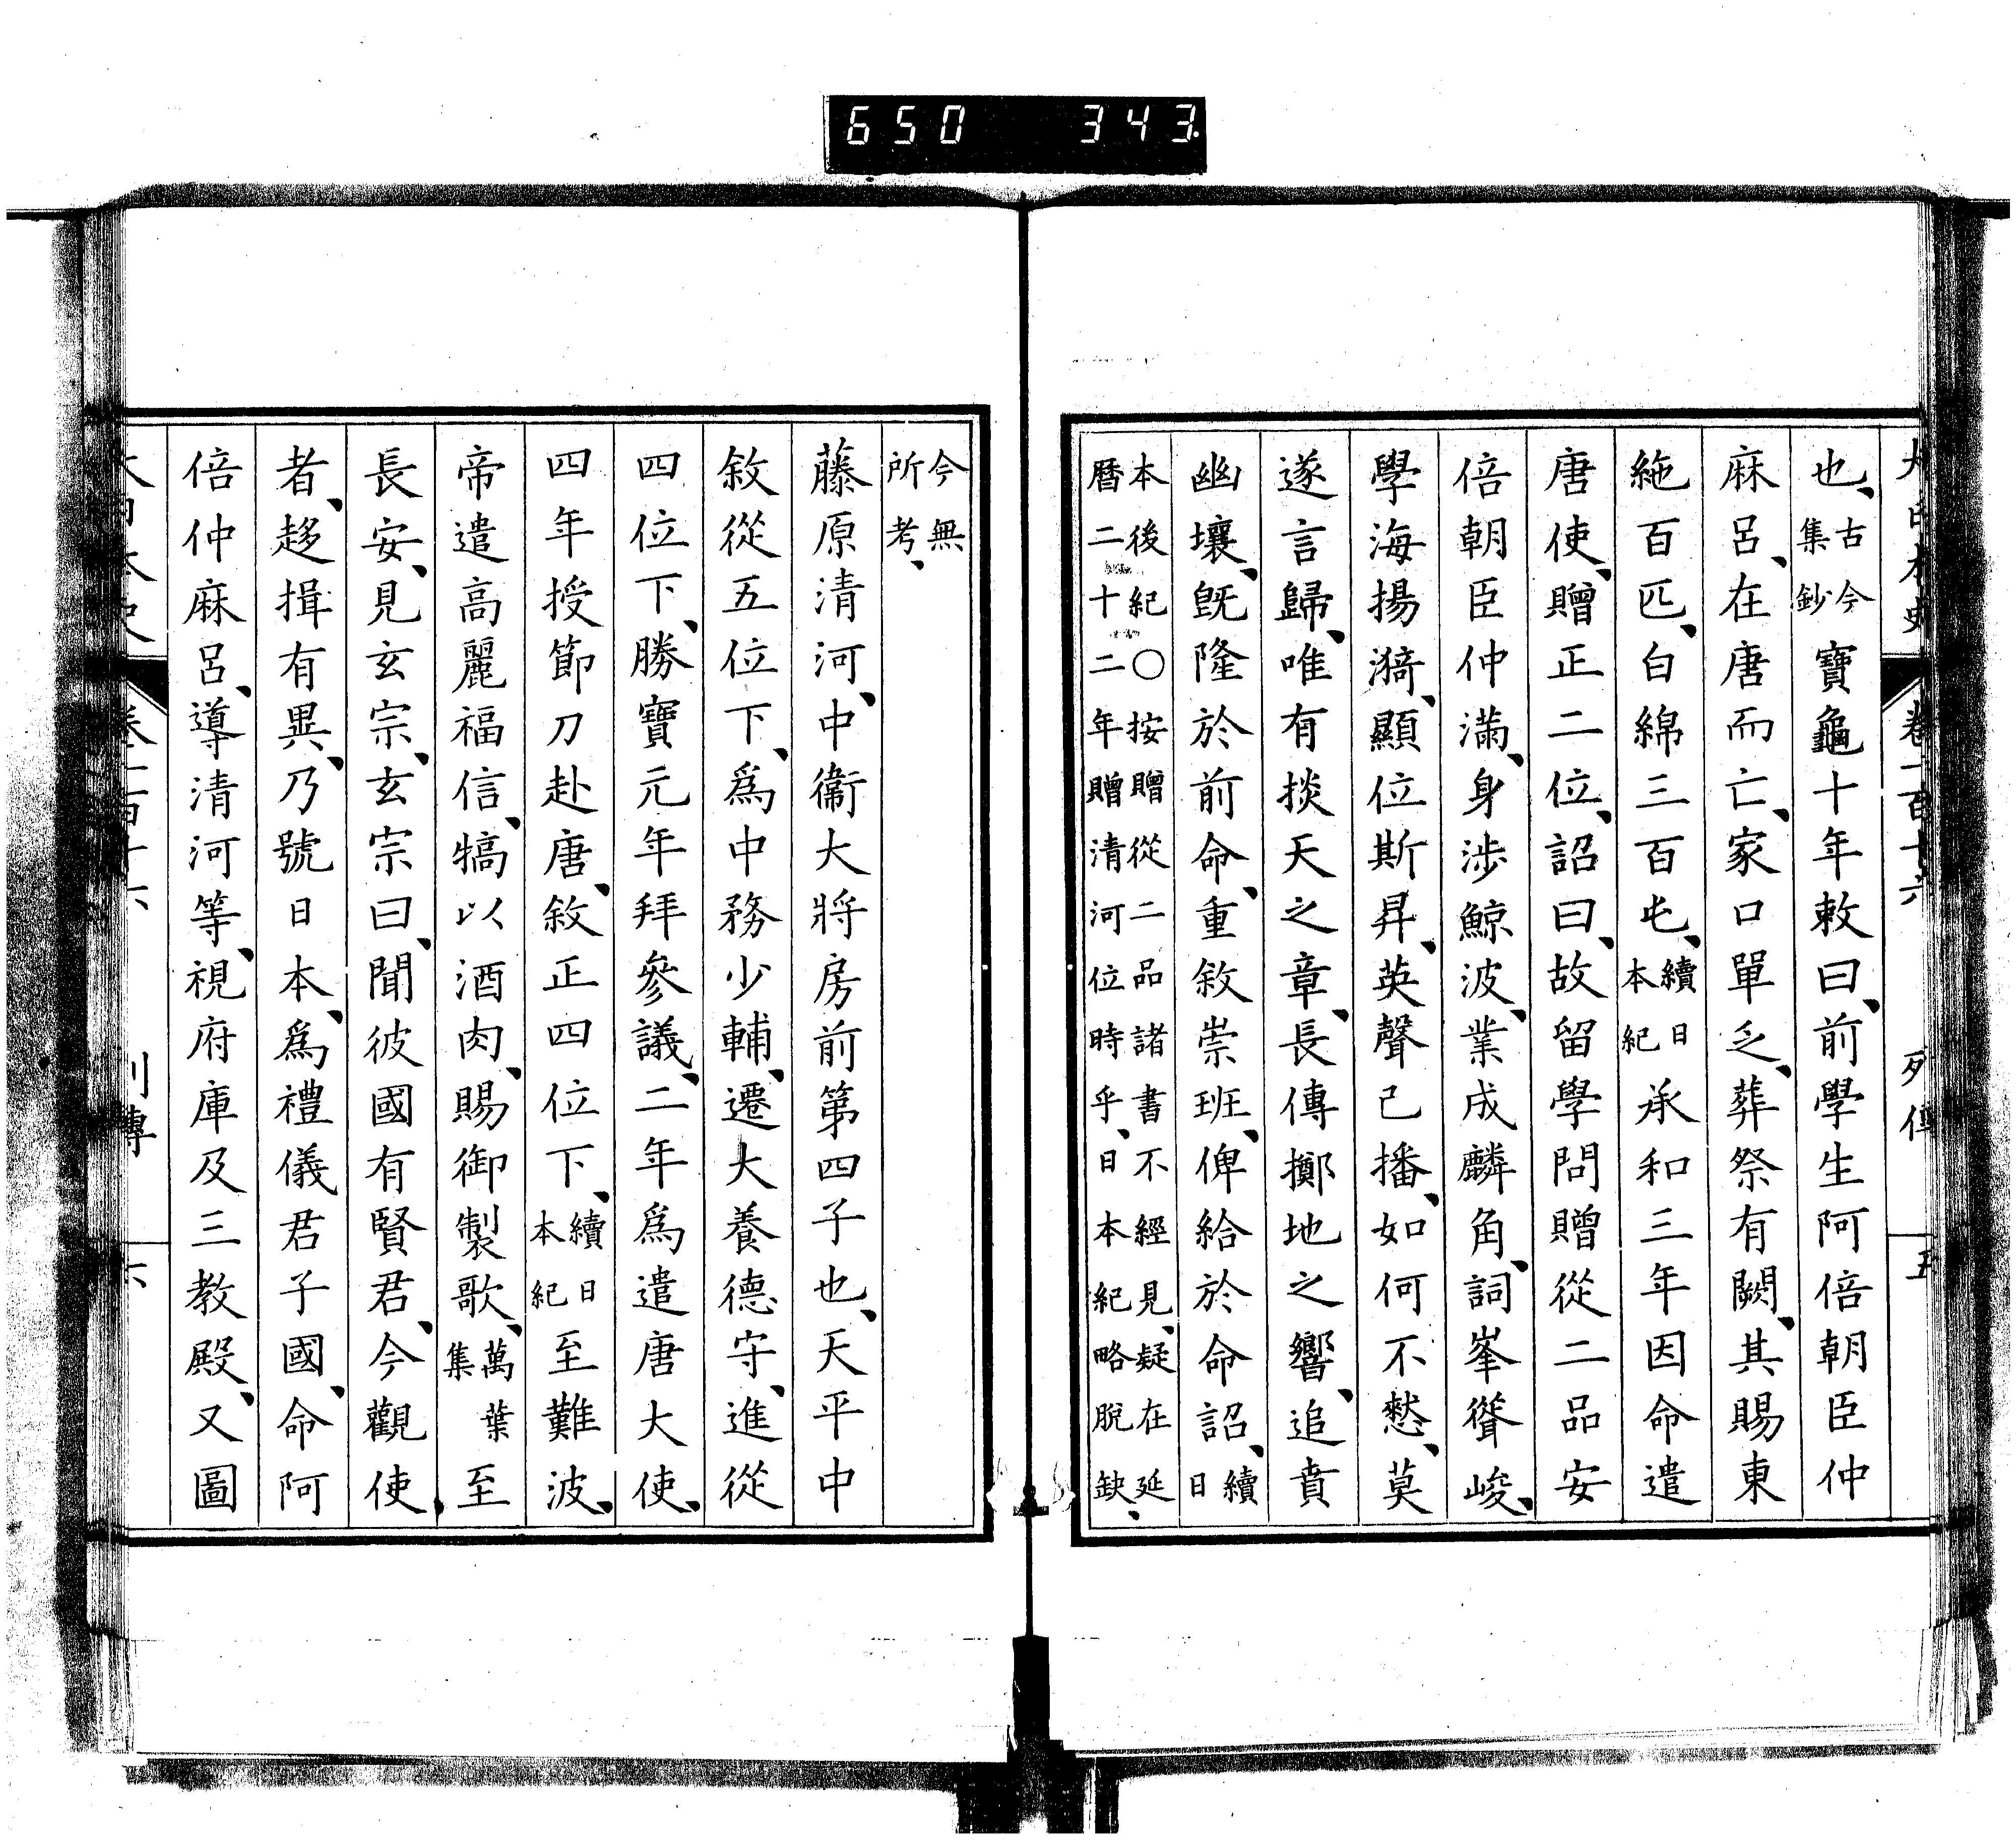 650 343.
大日本史 卷一百十六 列傳 五
也、古今集鈔寶龜十年敕曰、前學生阿倍朝臣仲
麻呂、在唐而亡、家口單乏、葬祭有闕、其賜東
絁百匹、白綿三百屯、續日本紀承和三年因命遣
唐使、贈正二位、詔曰、故留學問贈從二品安
倍朝臣仲滿、身涉鯨波、業成麟角、詞峯聳峻、
學海揚漪、顯位斯昇、英聲已播、如何不憖、莫
遂言歸、唯有掞天之章、長傳擲地之響、追賁
幽壤、既隆於前命、重敘崇班、俾給於命詔、續日
本後紀○按贈從二品諸書不經見、疑在延
曆二十二年贈清河位時乎、日本紀略脫缺、
今無
所考、
藤原清河、中衞大將房前第四子也、天平中
敘從五位下、爲中務少輔、遷大養德守、進從
四位下、勝寶元年拜參議、二年爲遣唐大使、
四年授節刀赴唐、敘正四位下、續日本紀至難波、
帝遣高麗福信、犒以酒肉、賜御製歌、萬葉集至
長安、見玄宗、玄宗曰、聞彼國有賢君、今觀使
者、趍揖有異、乃號日本、爲禮儀君子國、命阿
倍仲麻呂、導清河等、視府庫及三教殿、又圖
大日本史 卷一百十六 列傳 六